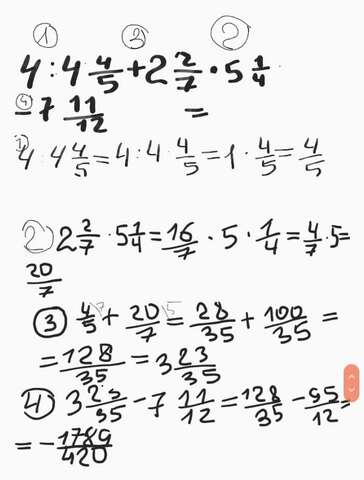 1 3 2
4 : 4 4/5 + 2 2/7 • 5 1/4
4
- 7 11/12 =
1) 4 : 4 4/5 = 4 : 4 · 4/5 = 1 · 4/5 = 4/5
2) 2 2/7 · 5 1/4 = 16/7 · 5 · 1/4 = 4/7 · 5 =
20/7
3) 4/5 + 20/7 = 28/35 + 100/35 =
= 128/35 = 3 23/35
4) 3 23/35 - 7 11/12 = 128/35 - 95/12 =
= - 1789/420